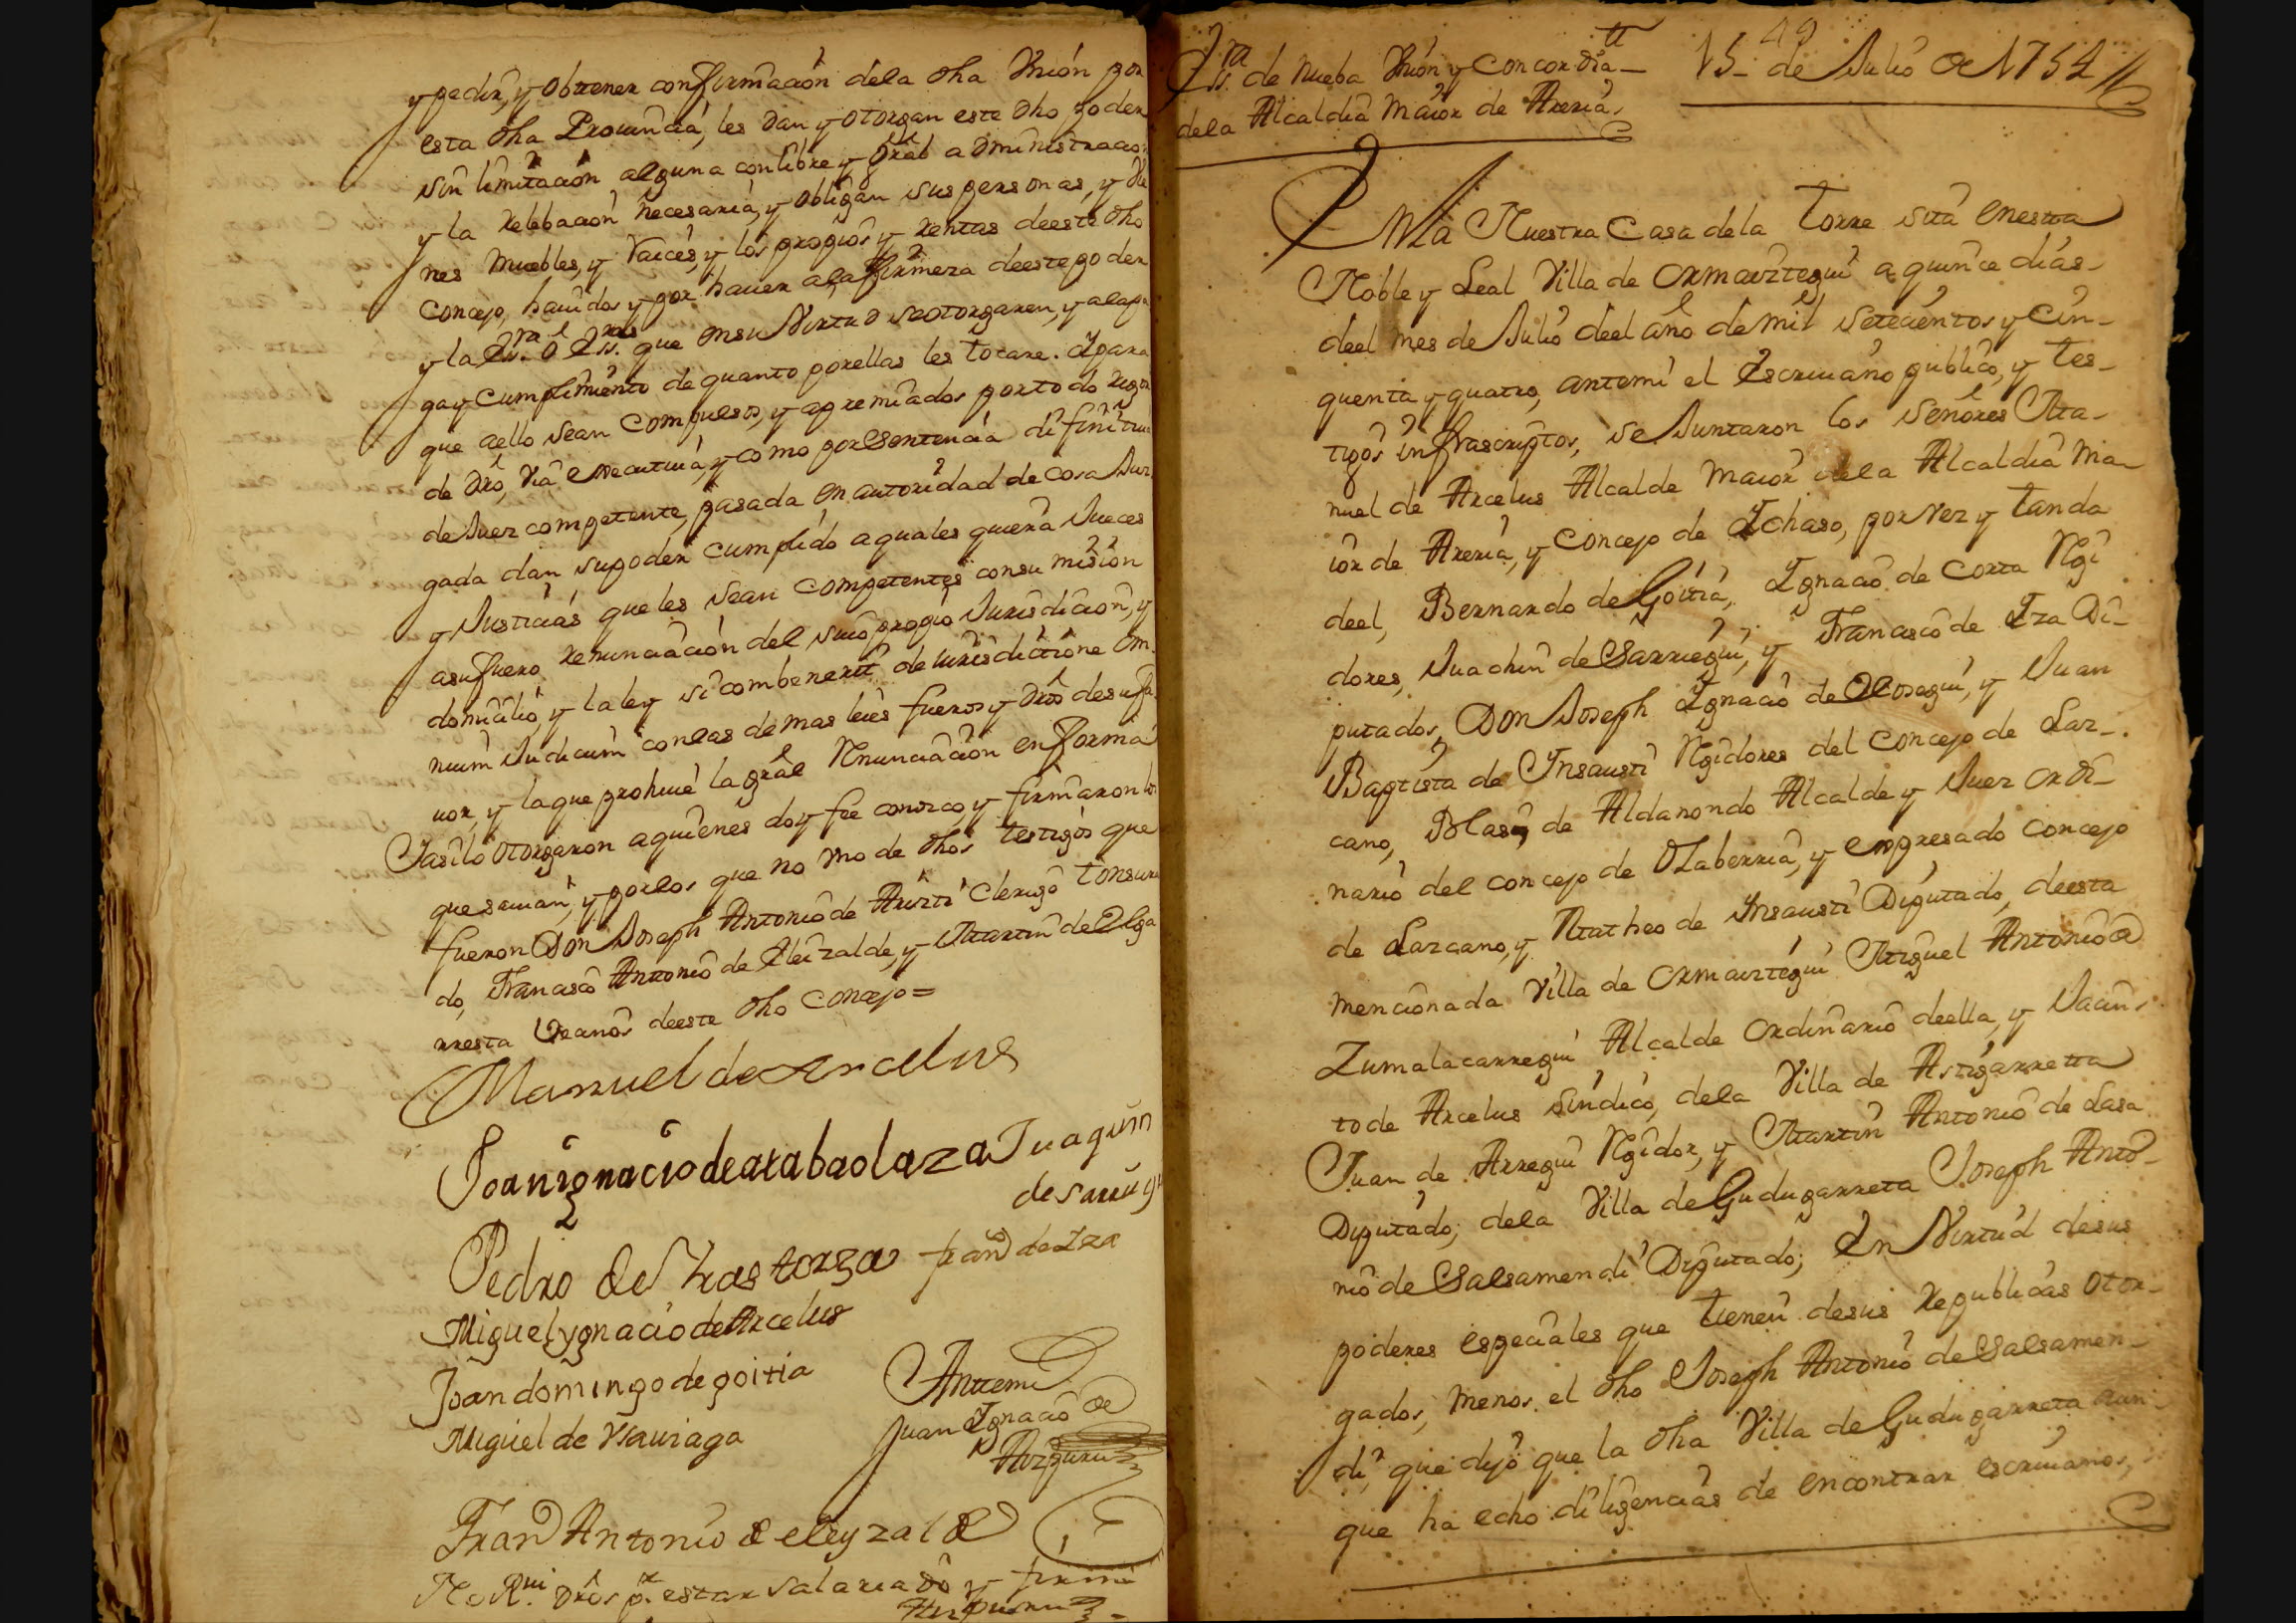 y pedir, y obtener confirmación dela dha Unión por
esta dha Provincia, les dan y otorgan este dho poder
sin limitación alguna con libre y Gral administracion
y la relebación necesaria, y obligan sus personas, y Vie
nes muebles, y raices, y los propios y rentas deeste dho
Concejo, hauidos y por hauer ala firmeza deeste poder
y la Essra ó Essras que en su Virtud se otorgaren, y ala pa
ga y Cumplimiento de quanto por ellas les tocare. Y para
que aello sean compulsos, y apremiados por todo rigor
de dro, via executiua, y como por Sentencia difinitiua
de Juez competente, pasada en autoridad de cosa Juz
gada dan su poder cumplido a quales quiera Jueces
y Justicias que les sean Competentes con su misión
asu fuero, renunciación del suio propio Jurisdicion, y
domicilio, y la ley si combenerit de iurisdictione om
nium Judicum con las demas leies fueros y dros de su fa
uor, y la que prohiue la gral Renunciación en forma
Iasilo otorgaron aquienes doy feé conozco, y firmaron los
que sauian, y por los que no uno de dhos testigos que
fueron Don Joseph Antonio de Ariztí Clerigo tonsura
do, Francisco Antonio de Eleizalde, y Martin de Elga
rresta Vecinos deeste dho Concejo=
Manuel de Arcelus
Joan ignacio de arabaolaza Juaquin
de sarriegui
Pedro de Irastorza franco de Iza
Miguel ygnacio de Arcelus
Joan domingo de goitia Antemi
Miguel de Usauiaga Juan Ignacio de
Aizpuru
Franco Antonio de eleyzalde
No Rui dros pr estar salariado y firmé
Aizpuru
Essra de nueba Unión y Concordia 15 de Julio de 1754
dela Alcaldia Maior de Areria
49
En la Nuestra Casa dela torre sita en esta
Noble y Leal Villa de Ormaiztegui a quince dias
deel mes de Julio deel año de mil setecientos y cin-
quenta y quatro, antemi el Escriuano publico, y tes-
tigos infrascriptos, se Juntaron los señores Ma-
nuel de Arcelus Alcalde Maior dela Alcaldia Ma-
ior de Areria, y Concejo de Ichaso, por vez y tanda
deel, Bernardo de Goitia, Ignacio de Corta Regi
dores, Juachin de Sarriegui, y Francisco de Iza Di-
putados, Don Joseph Ignacio de Olosegui, y Juan
Baptista de Insausti Regidores del Concejo de Laz-
cano, Blas de Aldanondo Alcalde y Juez ordi-
nario del concejo de Olaberria, y expresado Concejo
de Lazcano, y Matheo de Insausti Diputado, deesta
mencionada Villa de Ormaiztegui Miguel Antonio de
Zumalacarregui Alcalde ordinario deella, y Jacin-
to de Arcelus sindico, dela Villa de Astigarreta
Juan de Arregui Regidor, y Martin Antonio de Lasa
Diputado, dela Villa de Gudugarreta Joseph Anto-
nio de Salsamendi Diputado; En Virtud de sus
poderes especiales que tienen de sus Republicas otor-
gados, menos el dho Joseph Antonio de Salsamen-
di, que dijó que la dha Villa de Gudugarreta aun-
que ha echo diligencias de encontrar escriuanos,